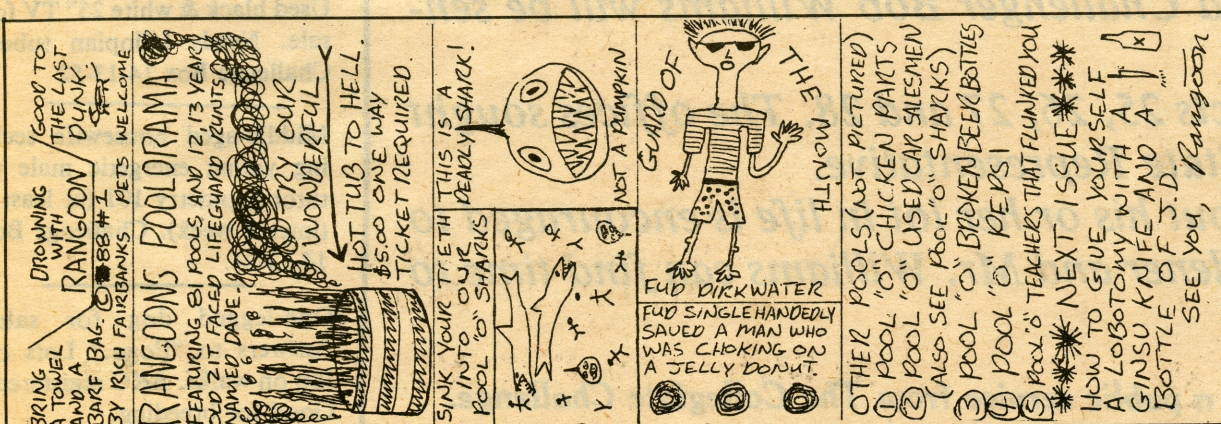 BRING
A TOWEL
AND A
BARF BAG.
DROWNING
WITH
RANGOON
(GOOD TO
THE LAST
DUNK
© 88 #1
BY RICH FAIRBANKS. PETS WELCOME
RANGOONS POOL-O-RAMA
FEATURING 81 POOLS AND 12, 13 YEAR
OLD ZIT FACED LIFEGUARD RUNTS
NAMED DAVE.
666
TRY OUR
WONDERFUL
HOT TUB TO HELL.
$5.00 ONE WAY
TICKET REQUIRED.
SINK YOUR TETH
INTO OUR
POOL "O" SHARKS
THIS IS A
DEADLY SHARK!
NOT A PUMPKIN
GUARD OF
THE
MONTH
FUD DIRKWATER
FUD SINGLEHANDEDLY
SAVED A MAN WHO
WAS CHOKING ON
A JELLY DONUT.
OTHER POOLS (NOT PICTURED)
① POOL "O" CHICKEN PARTS
② POOL "O" USED CAR SALESMEN
(ALSO SEE POOL "O" SHARKS)
③ POOL "O" BROKEN BEER BOTTLES
④ POOL "O" PEPSI
⑤ POOL "O" TEACHERS THAT FLUNKED YOU
*** NEXT ISSUE ***
HOW TO GIVE YOURSELF
A LOBOTOMY WITH A
GINSU KNIFE AND A
BOTTLE OF J.D.
SEE YOU, Rangoon